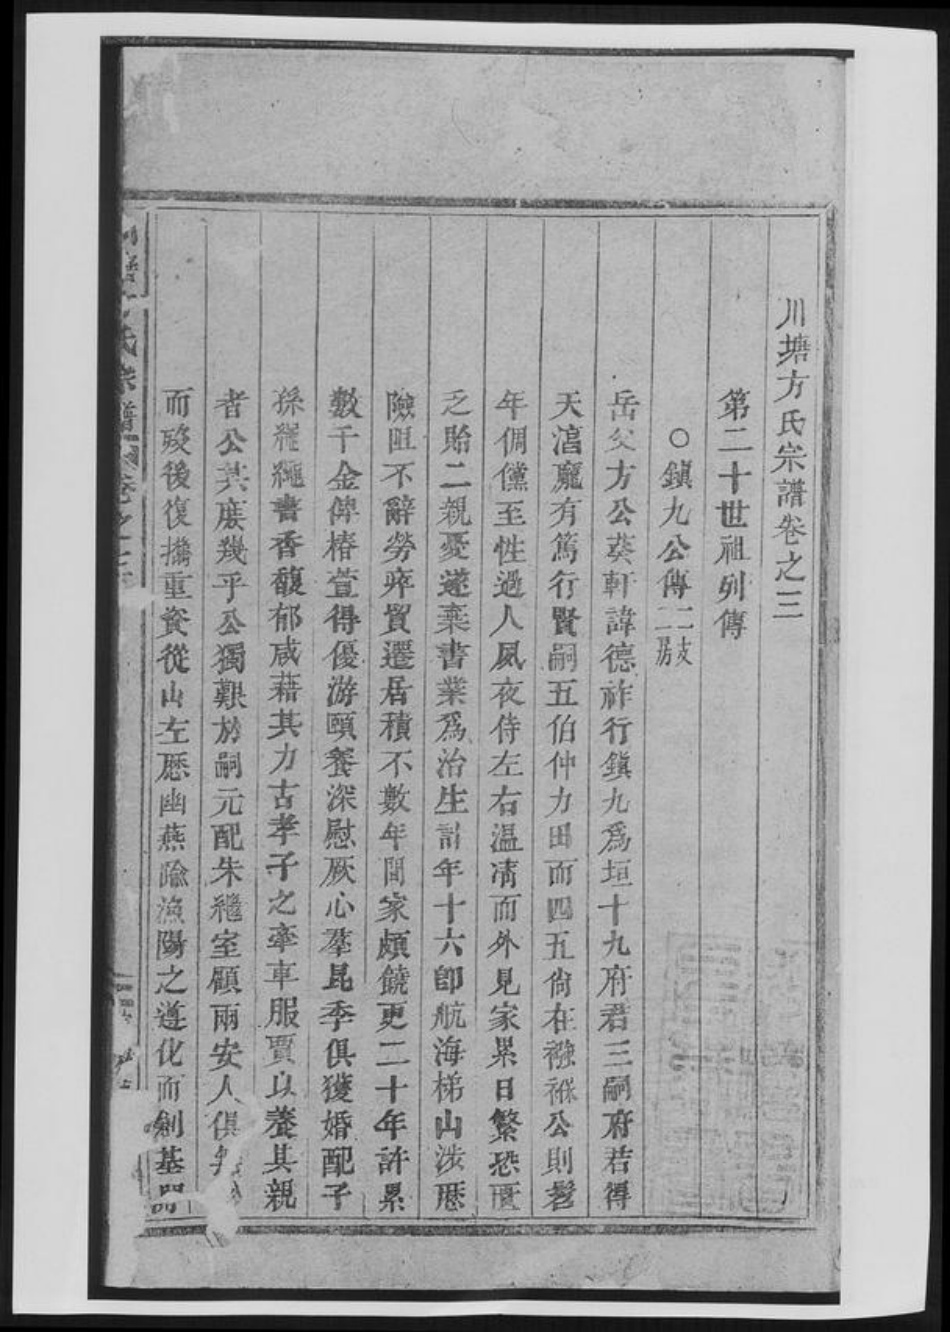 川塘方氏宗譜卷之三
第二十世祖列傳
○鎮九公傳二支二房
岳父方公葵軒諱德祚行鎮九爲垣十九府君三嗣府君得
天滀龐有篤行賢嗣五伯仲力田而四五尙在襁褓公則髫
年倜儻至性過人夙夜侍左右温凊而外見家累日繁恐匱
乏貽二親憂遂棄書業爲治生計年十六卽航海梯山涉歷
險阻不辭勞瘁貿遷居積不數年間家頗饒更二十年許累
數千金俾椿萱得優游頤養深慰厥心羣昆季俱獲婚配子
孫繩繩書香馥郁咸藉其力古孝子之牽車服賈以養其親
者公其庶幾乎公獨艱於嗣元配朱繼室顧兩安人俱
而歿後復攜重資從山左歷幽燕踰漁陽之遵化而創基開